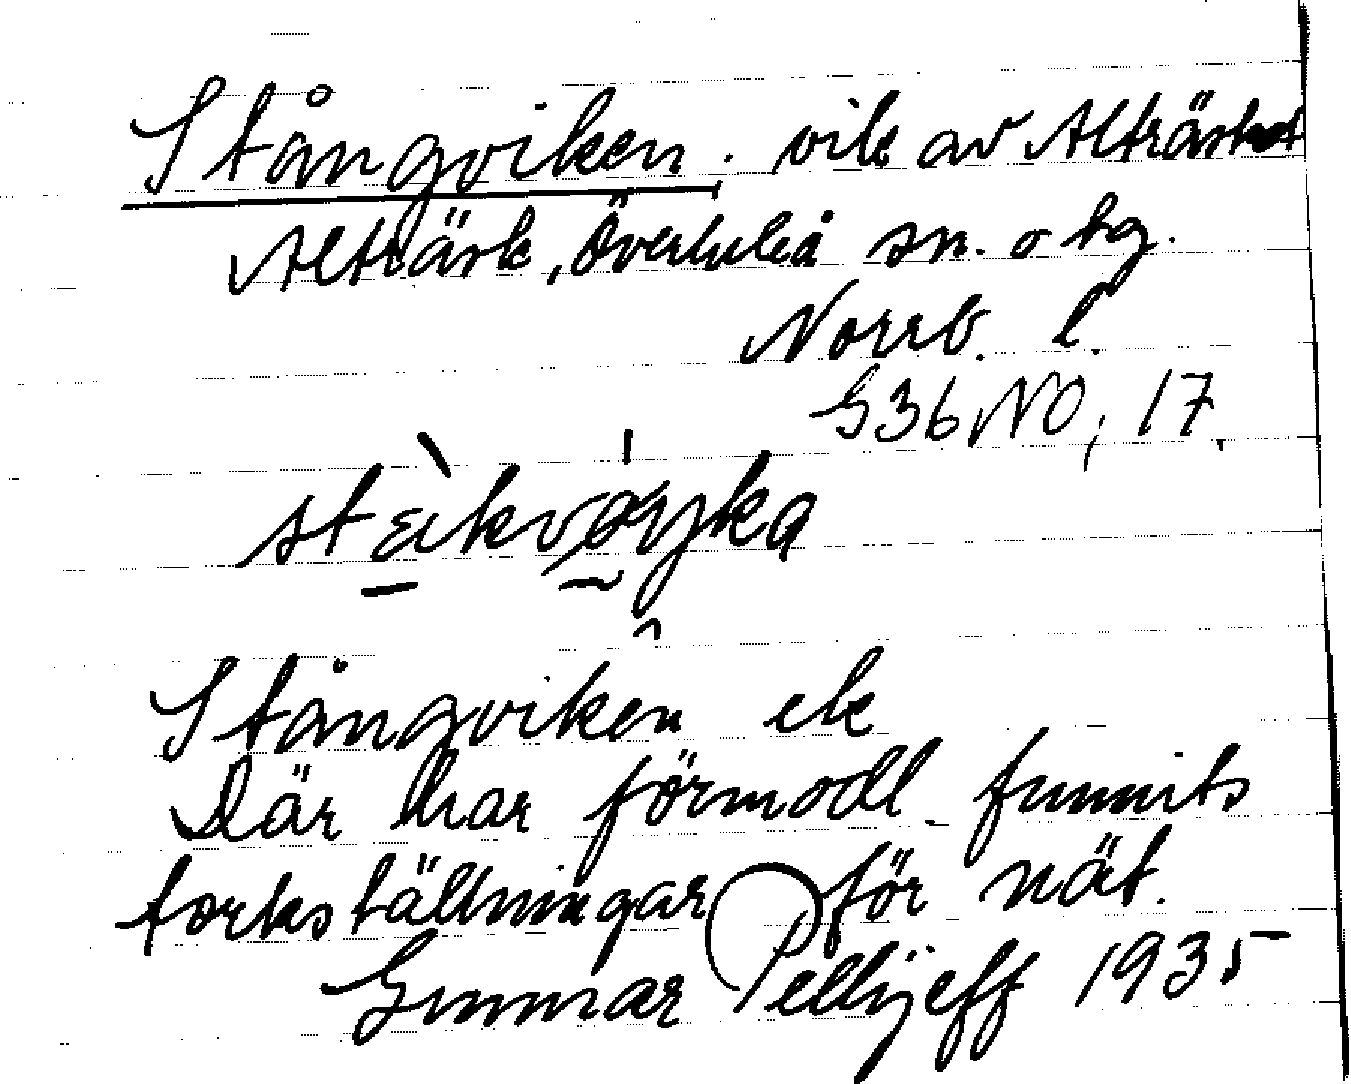 Stångviken. vik av Alträsket
Alträsk, Överluleå sn. o tg.
Norrb. l.
G36 NO, 17.
Stångviken ek
Där har förmodl. funnits
torkställningar för nät.
Gunnar Pellijeff 1935